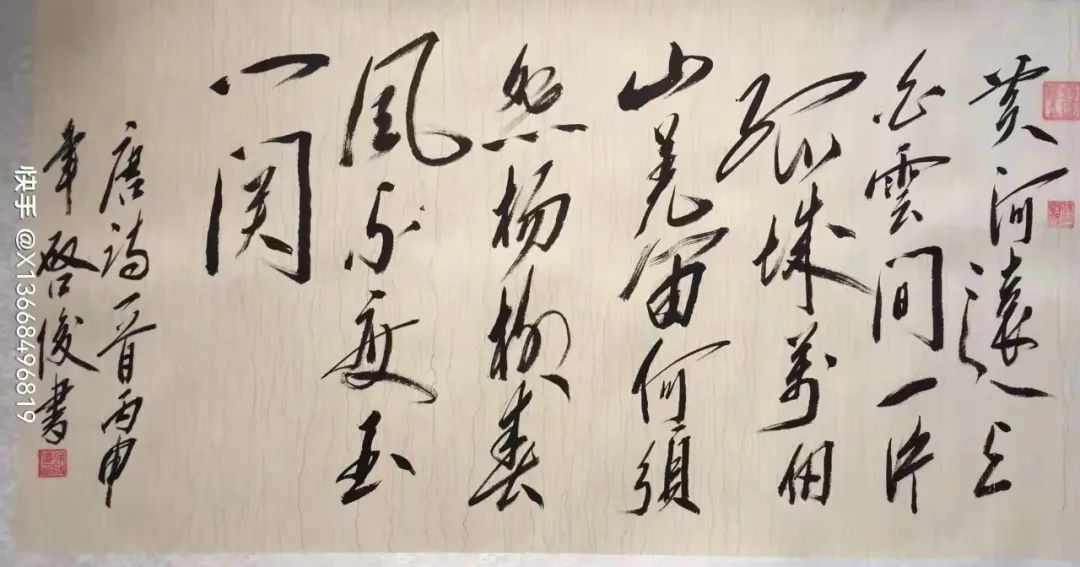 黄河遠上
白雲間一片
孤城萬仞
山羌笛何須
怨楊柳春
風不度玉
门関
唐诗一首丙申
年啓俊書
快手 @X13668496819